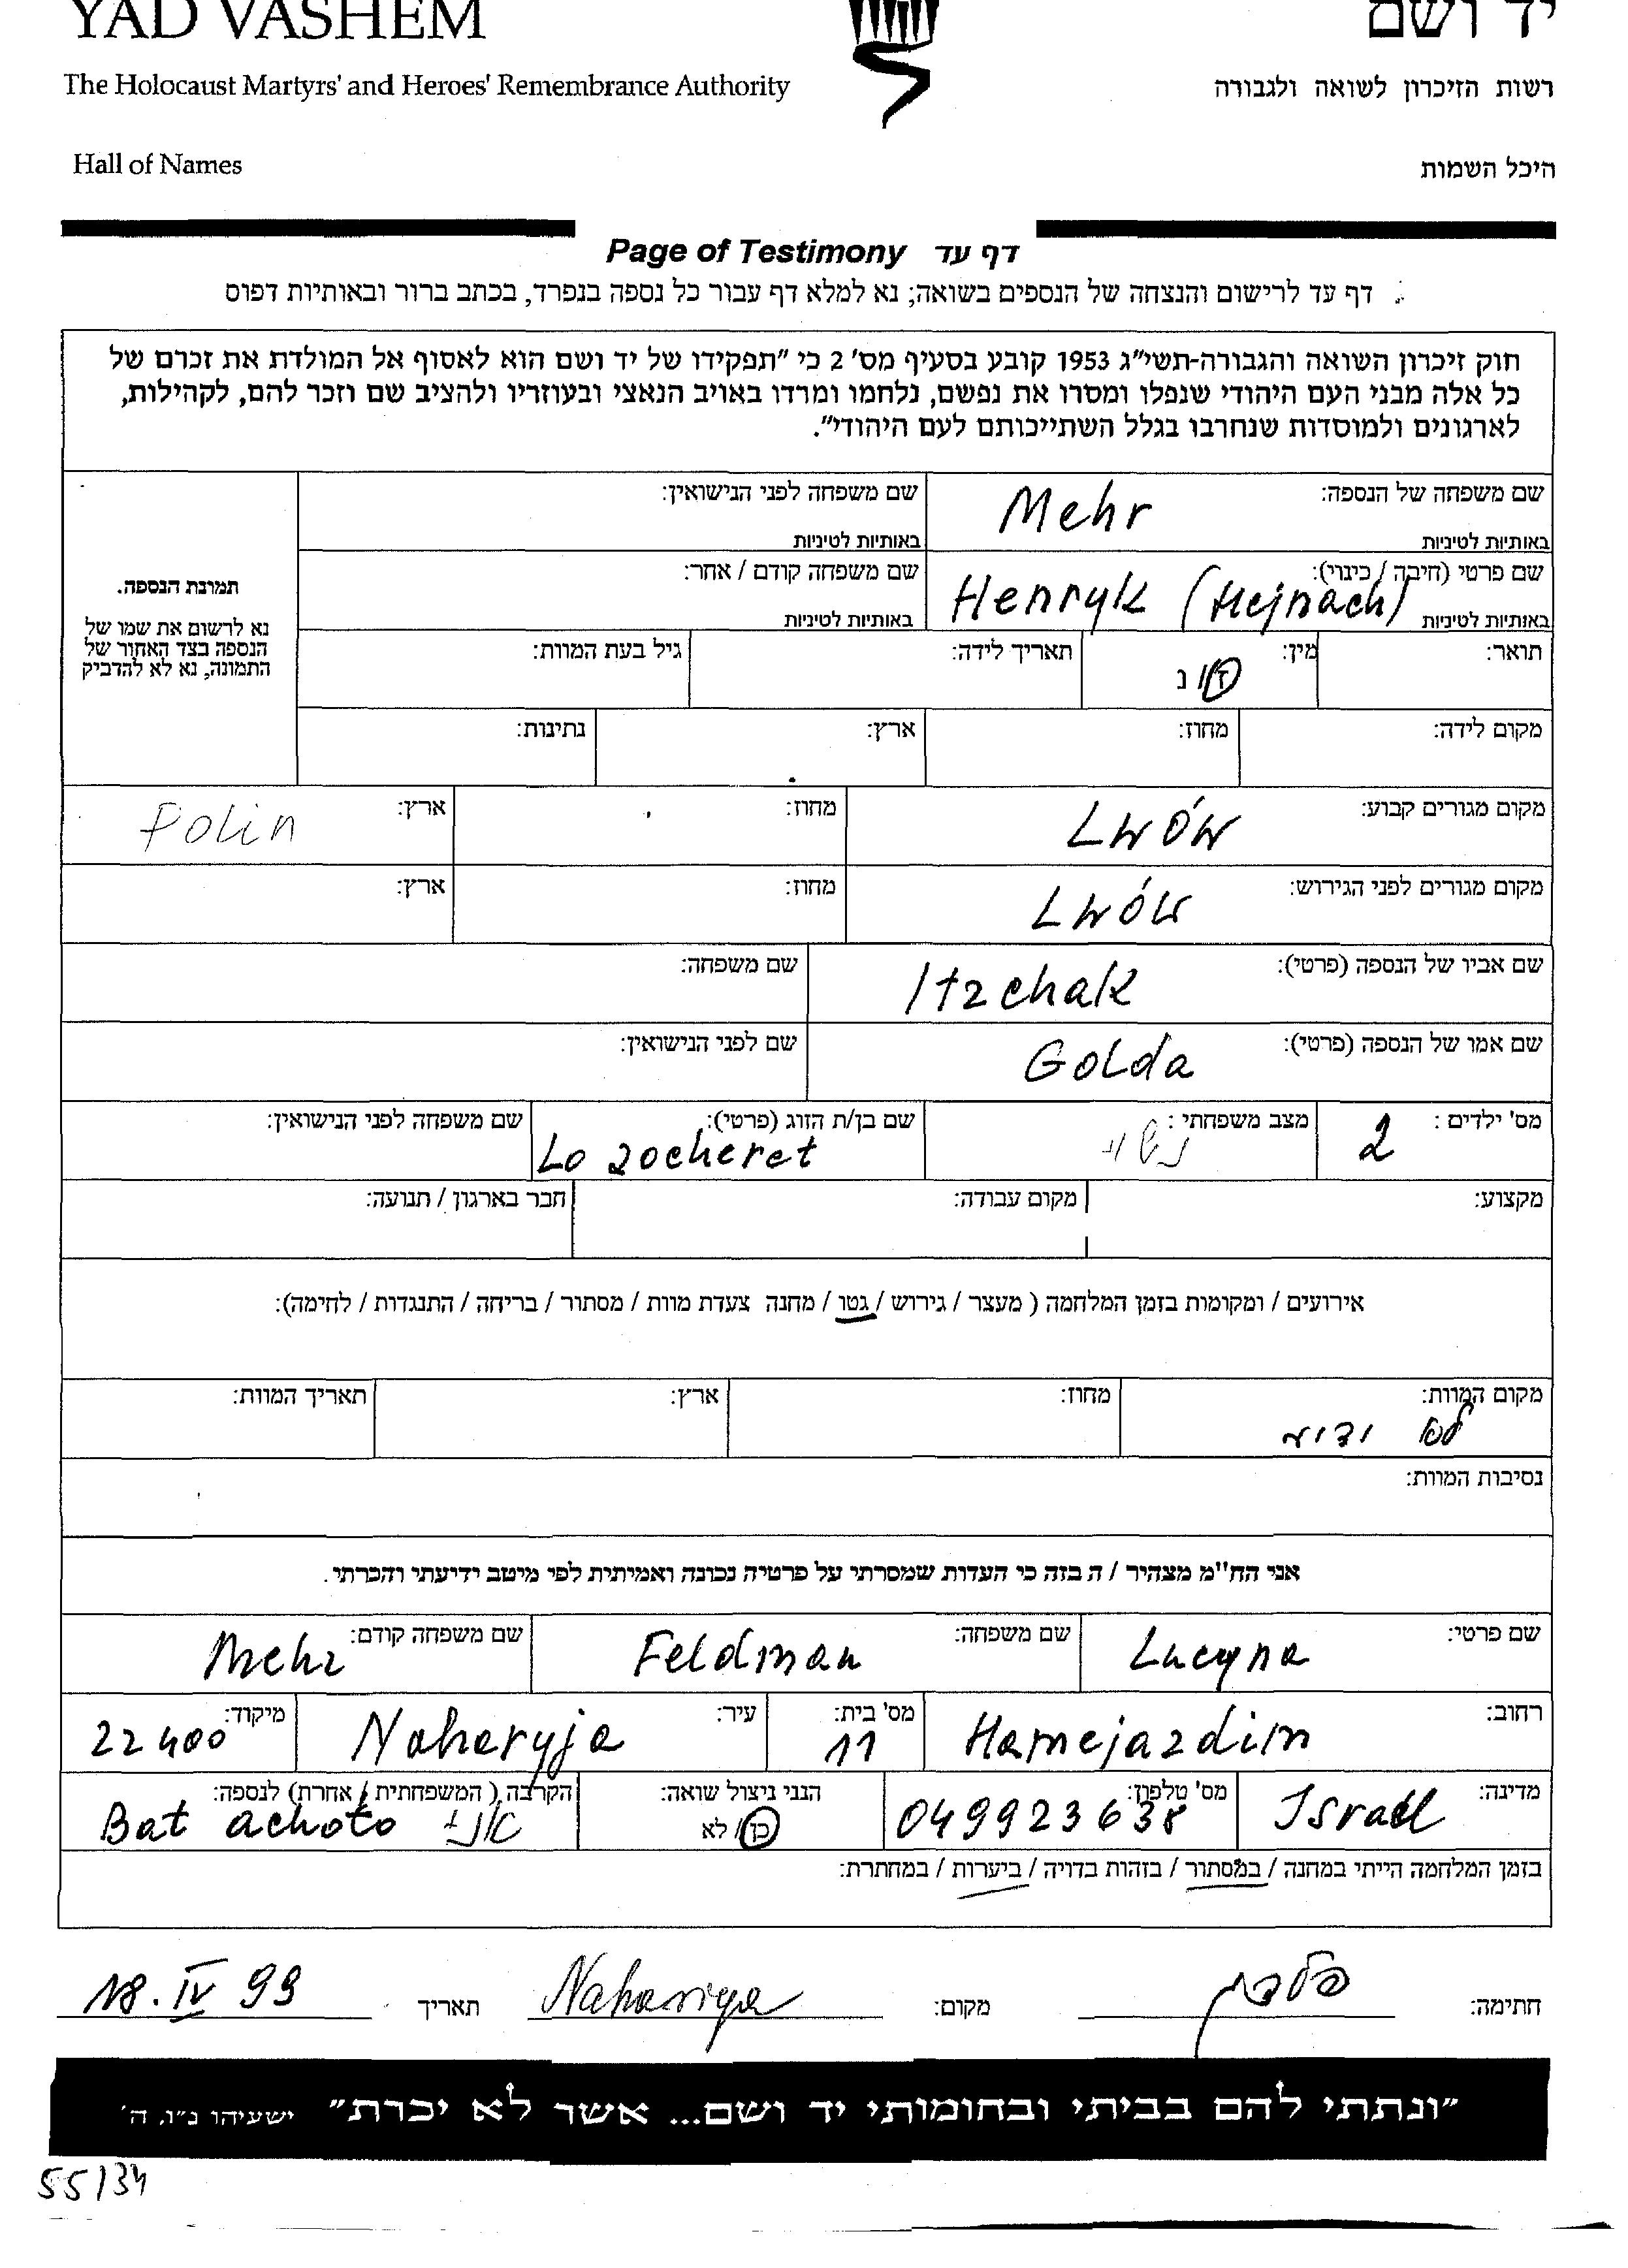 YAD VASHEM
יד ושם
The Holocaust Martyrs' and Heroes' Remembrance Authority
רשות הזיכרון לשואה ולגבורה
Hall of Names
היכל השמות
Page of Testimony דף עד
דף עד לרישום והנצחה של הנספים בשואה; נא למלא דף עבור כל נספה בנפרד, בכתב ברור ובאותיות דפוס
חוק זיכרון השואה והגבורה-תשי"ג 1953 קובע בסעיף מס' 2 כי "תפקידו של יד ושם הוא לאסוף אל המולדת את זכרם של
כל אלה מבני העם היהודי שנפלו ומסרו את נפשם, נלחמו ומרדו באויב הנאצי ובעוזריו ולהציב שם וזכר להם, לקהילות,
לארגונים ולמוסדות שנחרבו בגלל השתייכותם לעם היהודי".
שם משפחה של הנספה: Mehr שם משפחה לפני הנישואין:
באותיות לטיניות באותיות לטיניות
שם פרטי (חיבה / כינוי): Henryk (Hejnach) שם משפחה קודם / אחר:
באותיות לטיניות באותיות לטיניות
תמונת הנספה.
נא לרשום את שמו של
הנספה בצד האחור של
התמונה, נא לא להדביק
תואר: מין: ז / נ תאריך לידה: גיל בעת המוות:
מקום לידה: מחוז: ארץ: נתינות:
מקום מגורים קבוע: Lwów מחוז: ארץ: Polin
מקום מגורים לפני הגירוש: Lwów מחוז: ארץ:
שם אביו של הנספה (פרטי): Itzchak שם משפחה:
שם אמו של הנספה (פרטי): Golda שם לפני הנישואין:
מס' ילדים : 2 מצב משפחתי : נשוי שם בן/ת הזוג (פרטי): Lo zocheret שם משפחה לפני הנישואין:
מקצוע: מקום עבודה: חבר בארגון / תנועה:
אירועים / ומקומות בזמן המלחמה ( מעצר / גירוש / גטו / מחנה צעדת מוות / מסתור / בריחה / התנגדות / לחימה):
מקום המוות: לא ידוע מחוז: ארץ: תאריך המוות:
נסיבות המוות:
אני הח"מ מצהיר / ה בזה כי העדות שמסרתי על פרטיה נכונה ואמיתית לפי מיטב ידיעתי והכרתי.
שם פרטי: Lucyna שם משפחה: Feldman שם משפחה קודם: Mehr
רחוב: Hamejazdim מס' בית: 11 עיר: Naharyja מיקוד: 22400
מדינה: Israel מס' טלפון: 049923638 הנני ניצול שואה: כן / לא הקרבה ( המשפחתית / אחרת) לנספה: אני Bat achoto
בזמן המלחמה הייתי במחנה / במסתור / בזהות בדויה / ביערות / במחתרת:
חתימה: מקום: Nahariya תאריך 18. IV 99
"ונתתי להם בביתי ובחומותי יד ושם... אשר לא יכרת" ישעיהו נ"ו, ה'
55/34